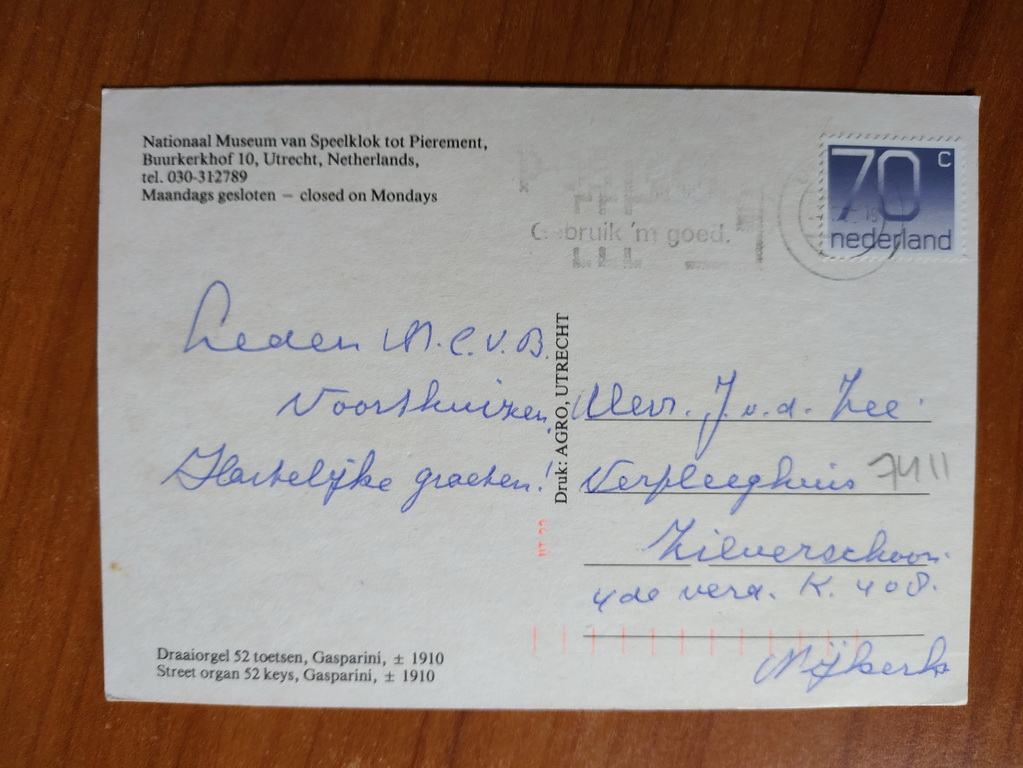 Nationaal Museum van Speelklok tot Pierement,
Buurkerkhof 10, Utrecht, Netherlands,
tel. 030-312789
Maandags gesloten – closed on Mondays
Gebruik 'm goed.
70 c
nederland
Leden M.C.v.B.
Voorthuizen,
Hartelijke groeten!
Druk: AGRO, UTRECHT
Mevr. J. v. d. Zee.
Verpleeghuis 7411
Zilverschoon
4de verd. K. 408.
Nijkerk
Draaiorgel 52 toetsen, Gasparini, ± 1910
Street organ 52 keys, Gasparini, ± 1910